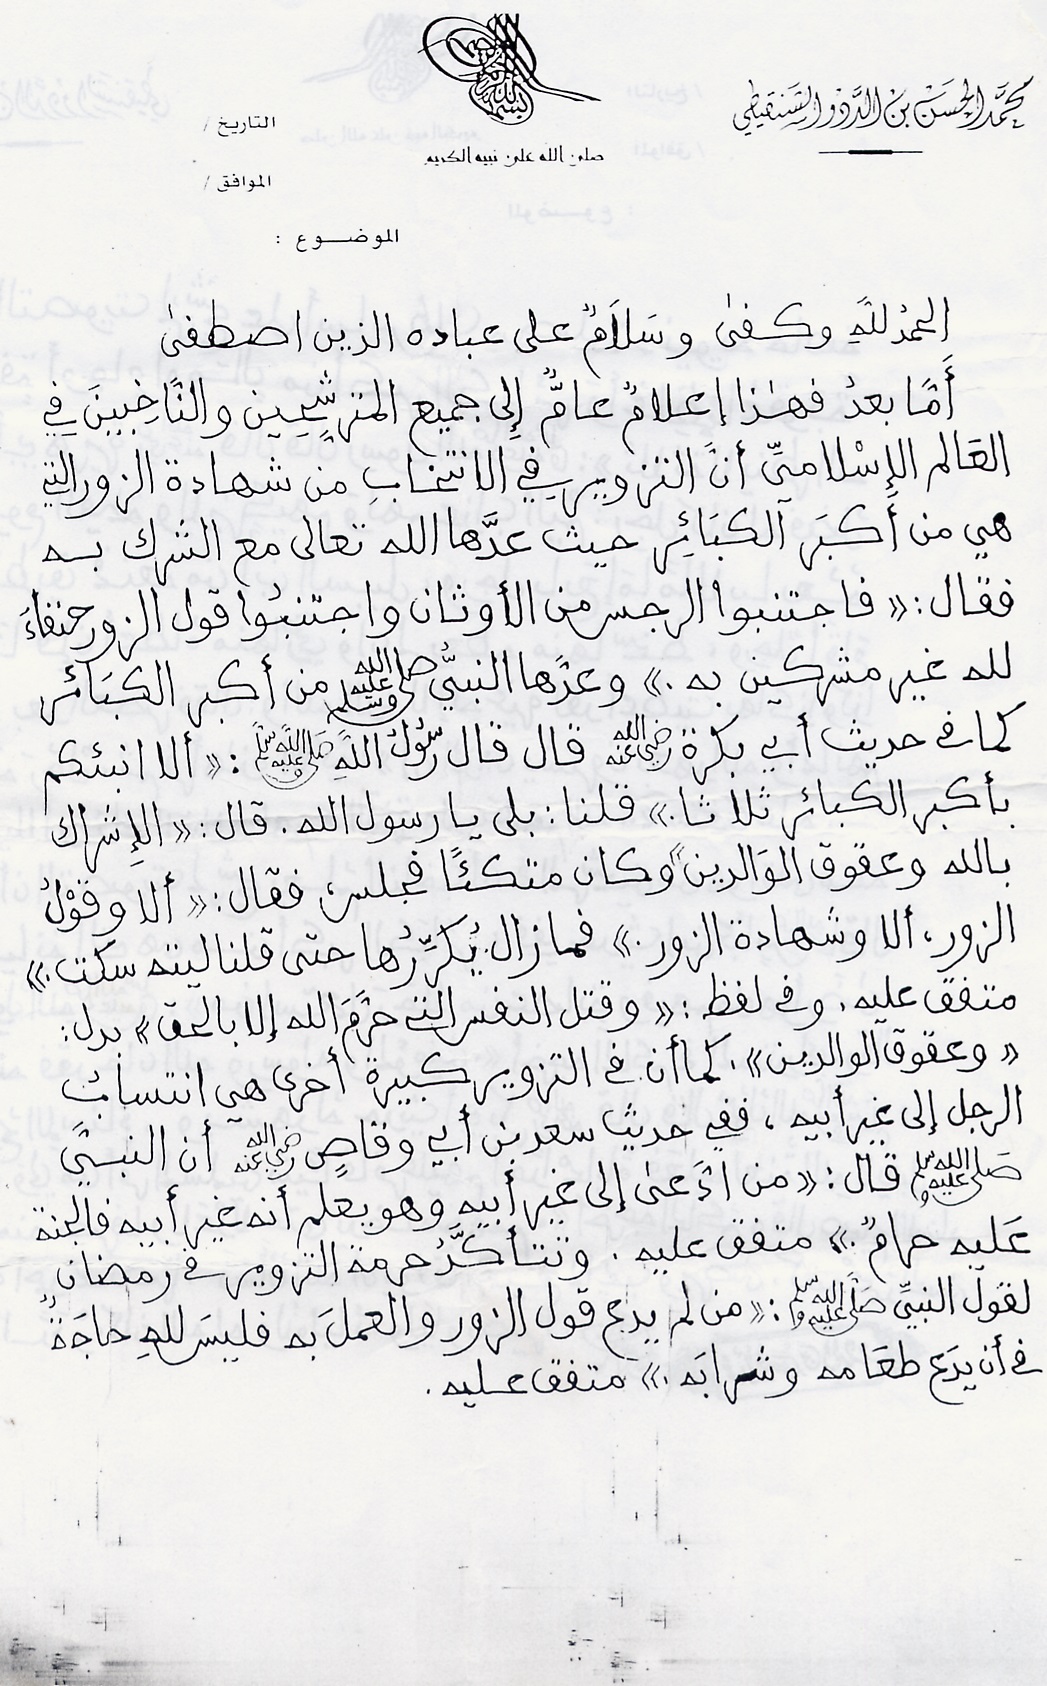 محمد الحسن بن الددو الشنقيطي
بسم الله الرحمن الرحيم
صلى الله على نبيه الكريم
التاريخ /
الموافق /
الموضـــوع :
الحمدُ للَّهِ وكفىٰ وسَلاَمٌ على عباده الذين اصطفىٰ
أمَّا بعدُ فهـٰذا إعلامٌ عامٌّ إلى جميع المترشِّحين والنَّاخبينَ في
العَالم الإسْلاميِّ أنَّ التزوير في الانتخابِ من شهادة الزور التي
هي من أكبَر الكبَائِر حيث عدَّها الله تعالى مع الشرك بـه
فقال: «فاجتنبوا الرجس من الأوثان واجتنبُوا قول الزور حنفاءَ
لله غير مشركين به.» وعدَّها النبيُّ صلى الله عليه وسلم من أكبر الكبَائر
كما في حديث أبي بكرة رضي الله عنه قال قال رسُولُ اللَّهِ صلى الله عليه وسلم: «ألا انبئكم
بأكبر الكبائر ثلاثا.» قلنا: بلى يا رسول الله. قال: «الإشراك
بالله وعقوق الوَالدين» وكان متكئًا فجلس، فقال: «ألا وقوْلُ
الزور، ألا وشهادة الزور.» فما زال يُكرِّرُها حتى قلنا ليته سكت.»
متفق عليه. وفي لفظ: «وقتل النفس التي حرَّمَ الله إلا بالحق» بدل:
«وعقوق الوالدين». كما أن في التزوير كبيرة أخرى هي انتسابُ
الرجل إلى غير أبيه، ففي حديث سعد بن أبي وقاصٍ رضي الله عنه أن النبيَّ
صلى الله عليه وسلم قال: «من ادَّعىٰ إلى غير أبيه وهو يعلم أنه غير أبيه فالجنة
عَليه حرامٌ.» متفق عليه. وتتأكَّدُ حرمة التزوير في رمضان
لقول النبيِّ صلى الله عليه وسلم: «من لم يدع قول الزور والعملَ به فليسَ للهِ حاجَةٌ
في أن يدَع طعَامه وشرابَه.» متفق عليه.